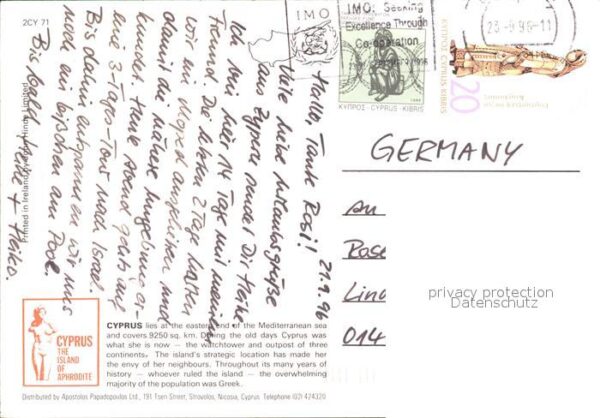 2CY 71
IMO
IMO: Seeking
Excellence Through
Co-operation
23-9-96-11
ΚΥΠΡΟΣ - CYPRUS - KIBRIS
ΚΥΠΡΟΣ CYPRUS KIBRIS
20
Hallo, Tante Rosi! 21.9.96
Viele liebe Urlaubsgrüße
aus Zypern sendet Dir Heike.
Ich bin hier 14 Tage mit meinem
Freund. Die letzten 2 Tage hatten
wir ein Moped ausgeliehen und
damit die nähere Umgebung er-
Heute abend geht's auf
eine 3-Tages-Tour nach Israel.
Bis dahin entspannen wir uns
noch ein bißchen am Pool.
Bis bald Heike + Heiko.
GERMANY
An
Rose
Lin
014
privacy protection
Datenschutz
Printed in Ireland by John Hinde Limited
CYPRUS
THE
ISLAND
OF
APHRODITE
CYPRUS lies at the eastern end of the Mediterranean sea
and covers 9250 sq. km. During the old days Cyprus was
what she is now — the watchtower and outpost of three
continents. The island's strategic location has made her
the envy of her neighbours. Throughout its many years of
history — whoever ruled the island — the overwhelming
majority of the population was Greek.
Distributed by Apostolos Papadopoulos Ltd., 191 Tsen Street, Strovolos, Nicosia, Cyprus. Telephone (02) 424320